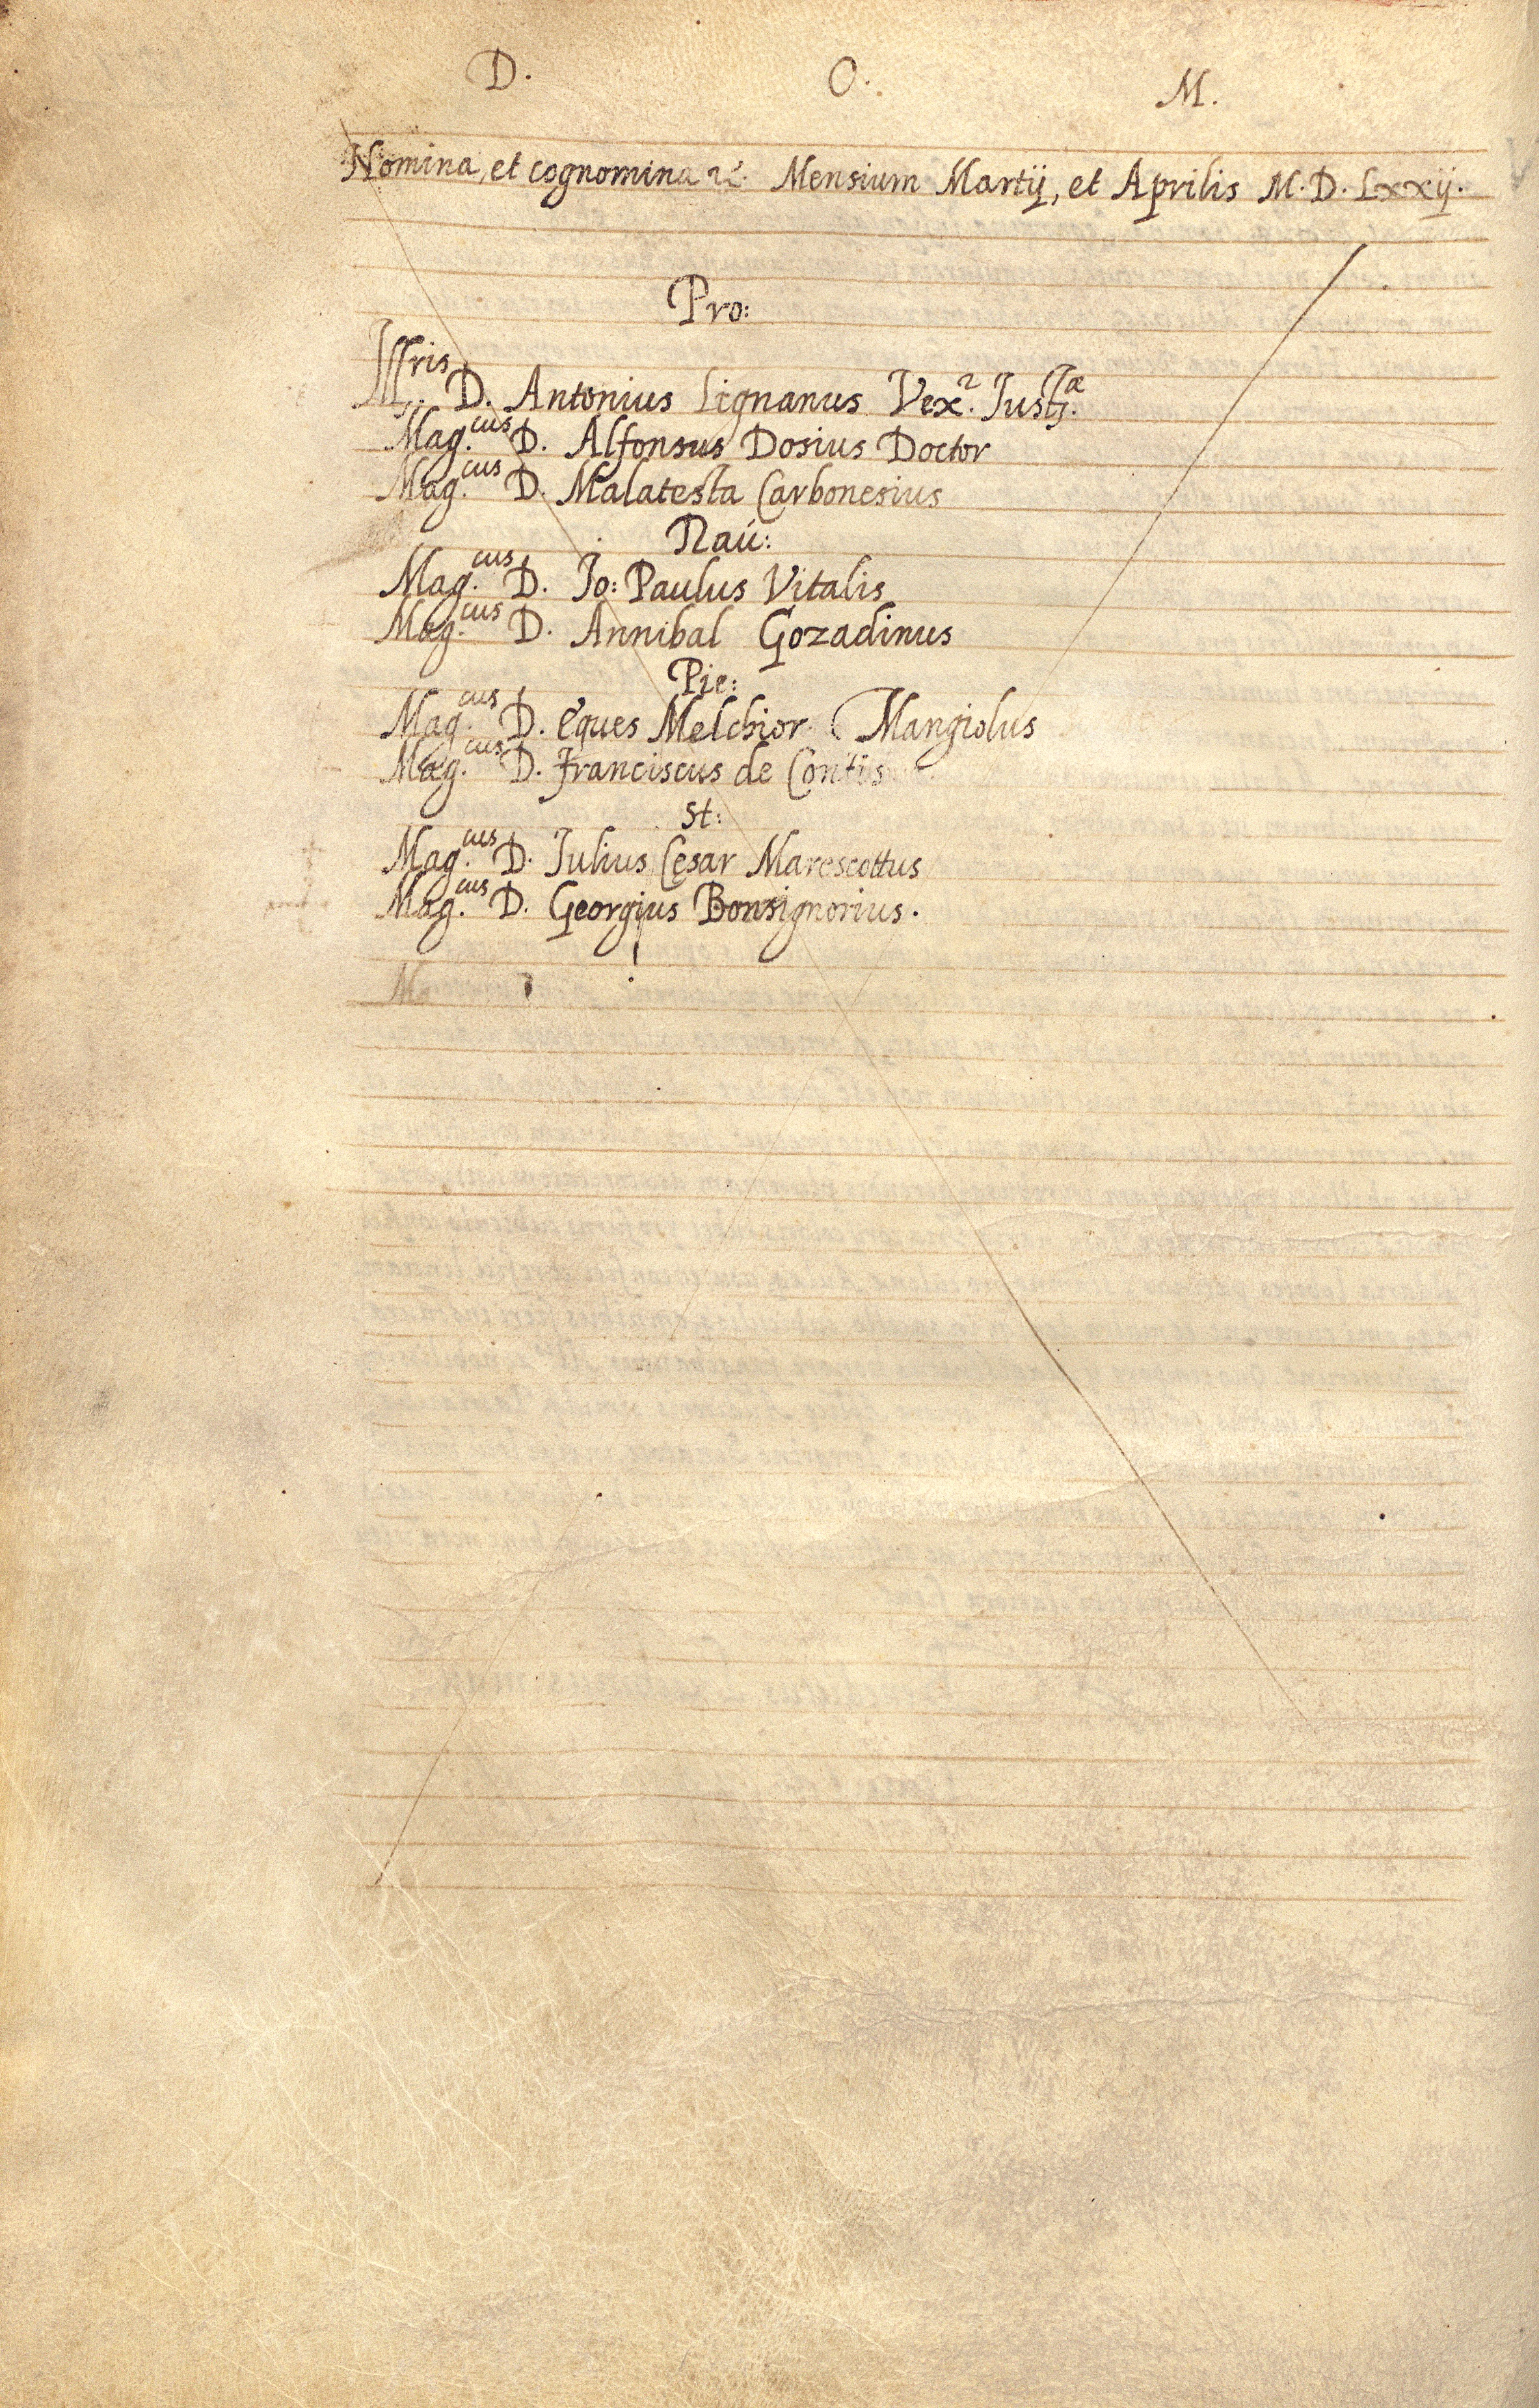 D. O. M.
Nomina, et cognomina &c. Mensium Martij, et Aprilis M.D.Lxxij.
Pro:
Illris D. Antonius Lignanus Vex.r Justæ.
Mag.cus D. Alfonsus Dosius Doctor
Mag.cus D. Malatesta Carbonesius
Nau:
Mag.cus D. Jo: Paulus Vitalis
Mag.cus D. Annibal Gozadinus
Pie:
Mag.cus D. Eques Melchior Mangiolus
Mag.cus D. Franciscus de Contis
St:
Mag.cus D. Julius Cęsar Marescottus
Mag.cus D. Georgius Bonsignorius.